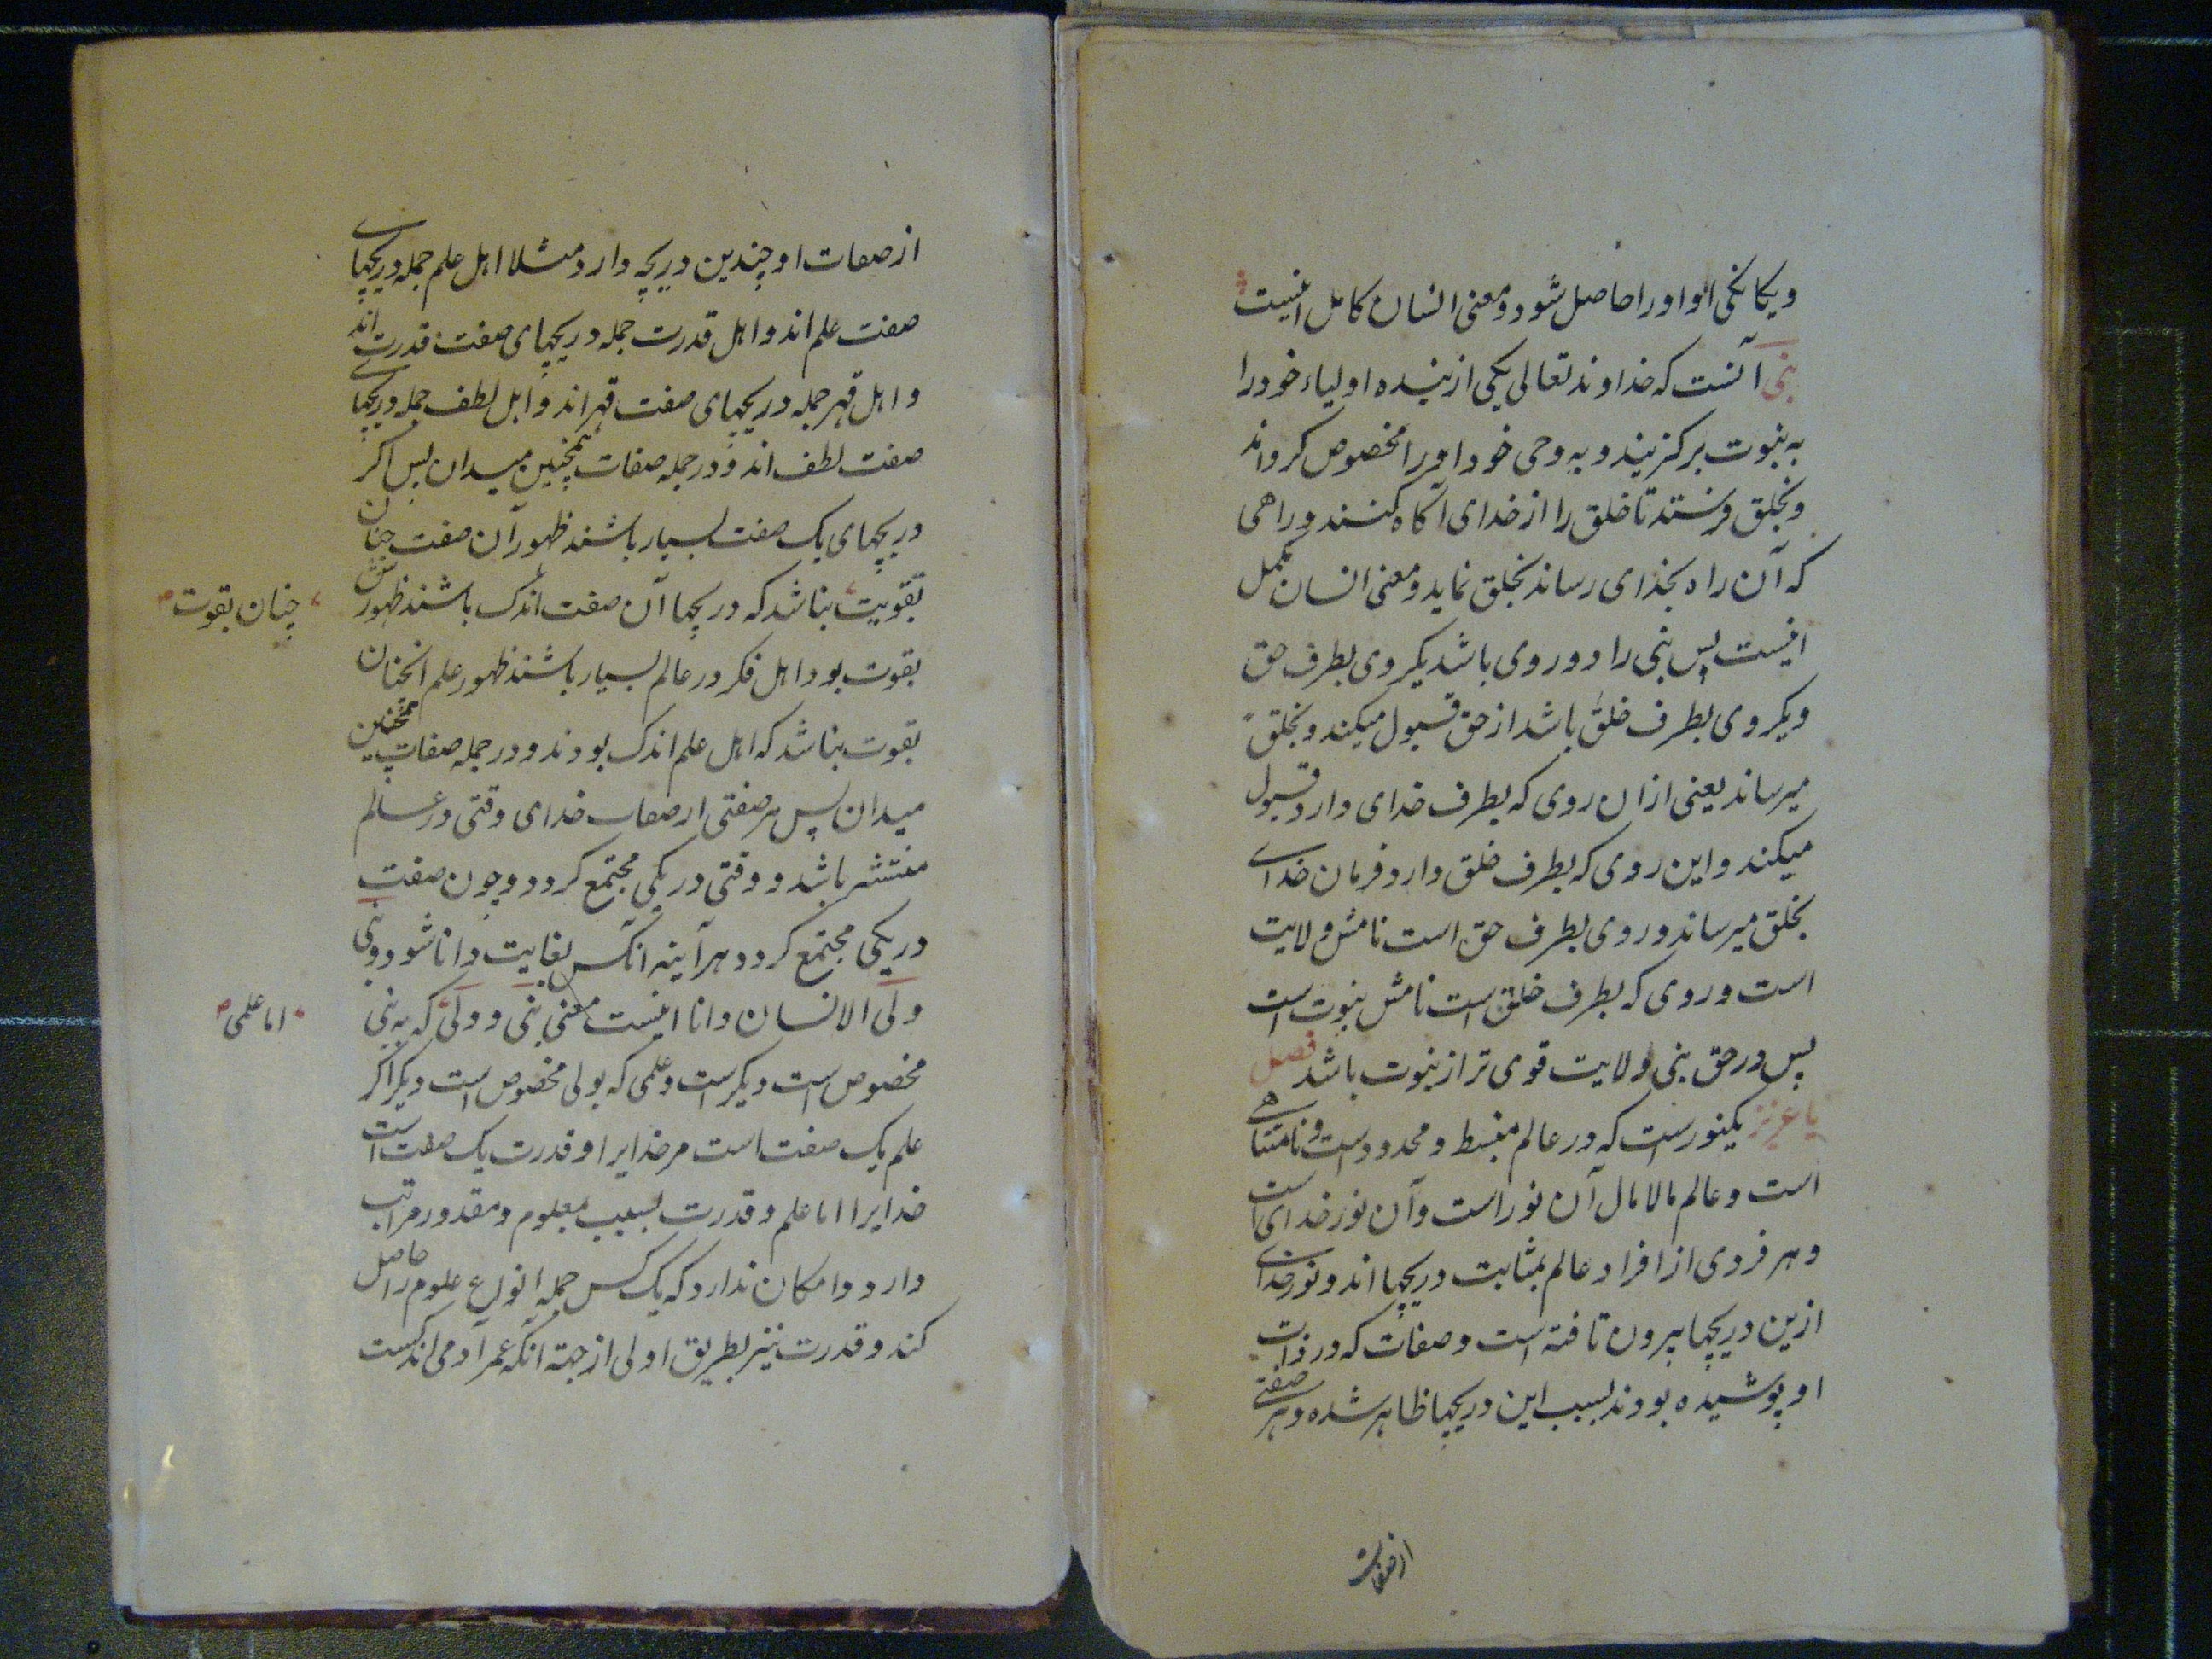 ویکانکی او اورا حاصل شود و معنی انسان کامل اینست
نبی آنست که خداوند تعالی یکی از بنده اولیاء خود را
به نبوت برکزیند و به وحی خود اورا مخصوص کرداند
و بخلق فرستد تا خلق را از خدای آکاه کنند و راهی
که آن راه بخدای رساند بخلق نماید و معنی انسان مکمل
اینست پس نبی را دو روی باشد یکروی بطرف حق
ویکروی بطرف خلق باشد از حق قبول میکند و بخلق
میرساند یعنی ازان روی که بطرف خدای دارد قبول
میکند و این روی که بطرف خلق دارد فرمان خدای
بخلق میرساند و روی بطرف حق است نامش ولایت
است و روی که بطرف خلق است نامش نبوت است
پس در حق نبی ولایت قوی تر از نبوت باشد فصل
یا عزیز یکنورست که در عالم منبسط و محدودست و نامتناهی
است و عالم مالامال آن نور است و آن نور خدای است
و هر فردی از افراد عالم بمثابت دریچها اند و نور خدای
ازین دریچها بیرون تافته است و صفات که در ذات
او پوشیده بودند بسبب این دریچها ظاهر شده و هر صفتی
از صفات
از صفات او چندین دریچه دارد مثلا اهل علم جمله دریچهای
صفت علم اند و اهل قدرت جمله دریچهای صفت قدرت اند
و اهل قهر جمله دریچهای صفت قهر اند و اهل لطف جمله دریچهای
صفت لطف اند و در جمله صفات همچنین میدان پس اکر
دریچهای یک صفت بسیار باشند ظهور آن صفت چنان
تقویت بناشد که دریچها آن صفت اندک باشند ظهورش
چنان بقوت
بقوت بود اهل فکر در عالم بسیار باشند ظهور علم انچنان
بقوت بناشد که اهل علم اندک بودند و در جمله صفات همچنین
میدان پس هر صفتی از صفات خدای وقتی در عالم
منتشر باشد و وقتی در یکی مجتمع کردد و چون صفت
در یکی مجتمع کردد هر آینه آنکس بغایت دانا شود و نبی
ولی الانسان دانا اینست معنی نبی و ولی که به نبی
اما علمی
مخصوص است دیکرست و علمی که بولی مخصوص است دیکر اکر
علم یک صفت است مر خدایرا و قدرت یک صفت است
خدایرا اما علم و قدرت بسبب معلوم و مقدور مراتب
دارد و امکان ندارد که یک کس جمله انواع علوم را حاصل
کند و قدرت نیز بطریق اولی از جهة آنکه عمر آدمی اندکست